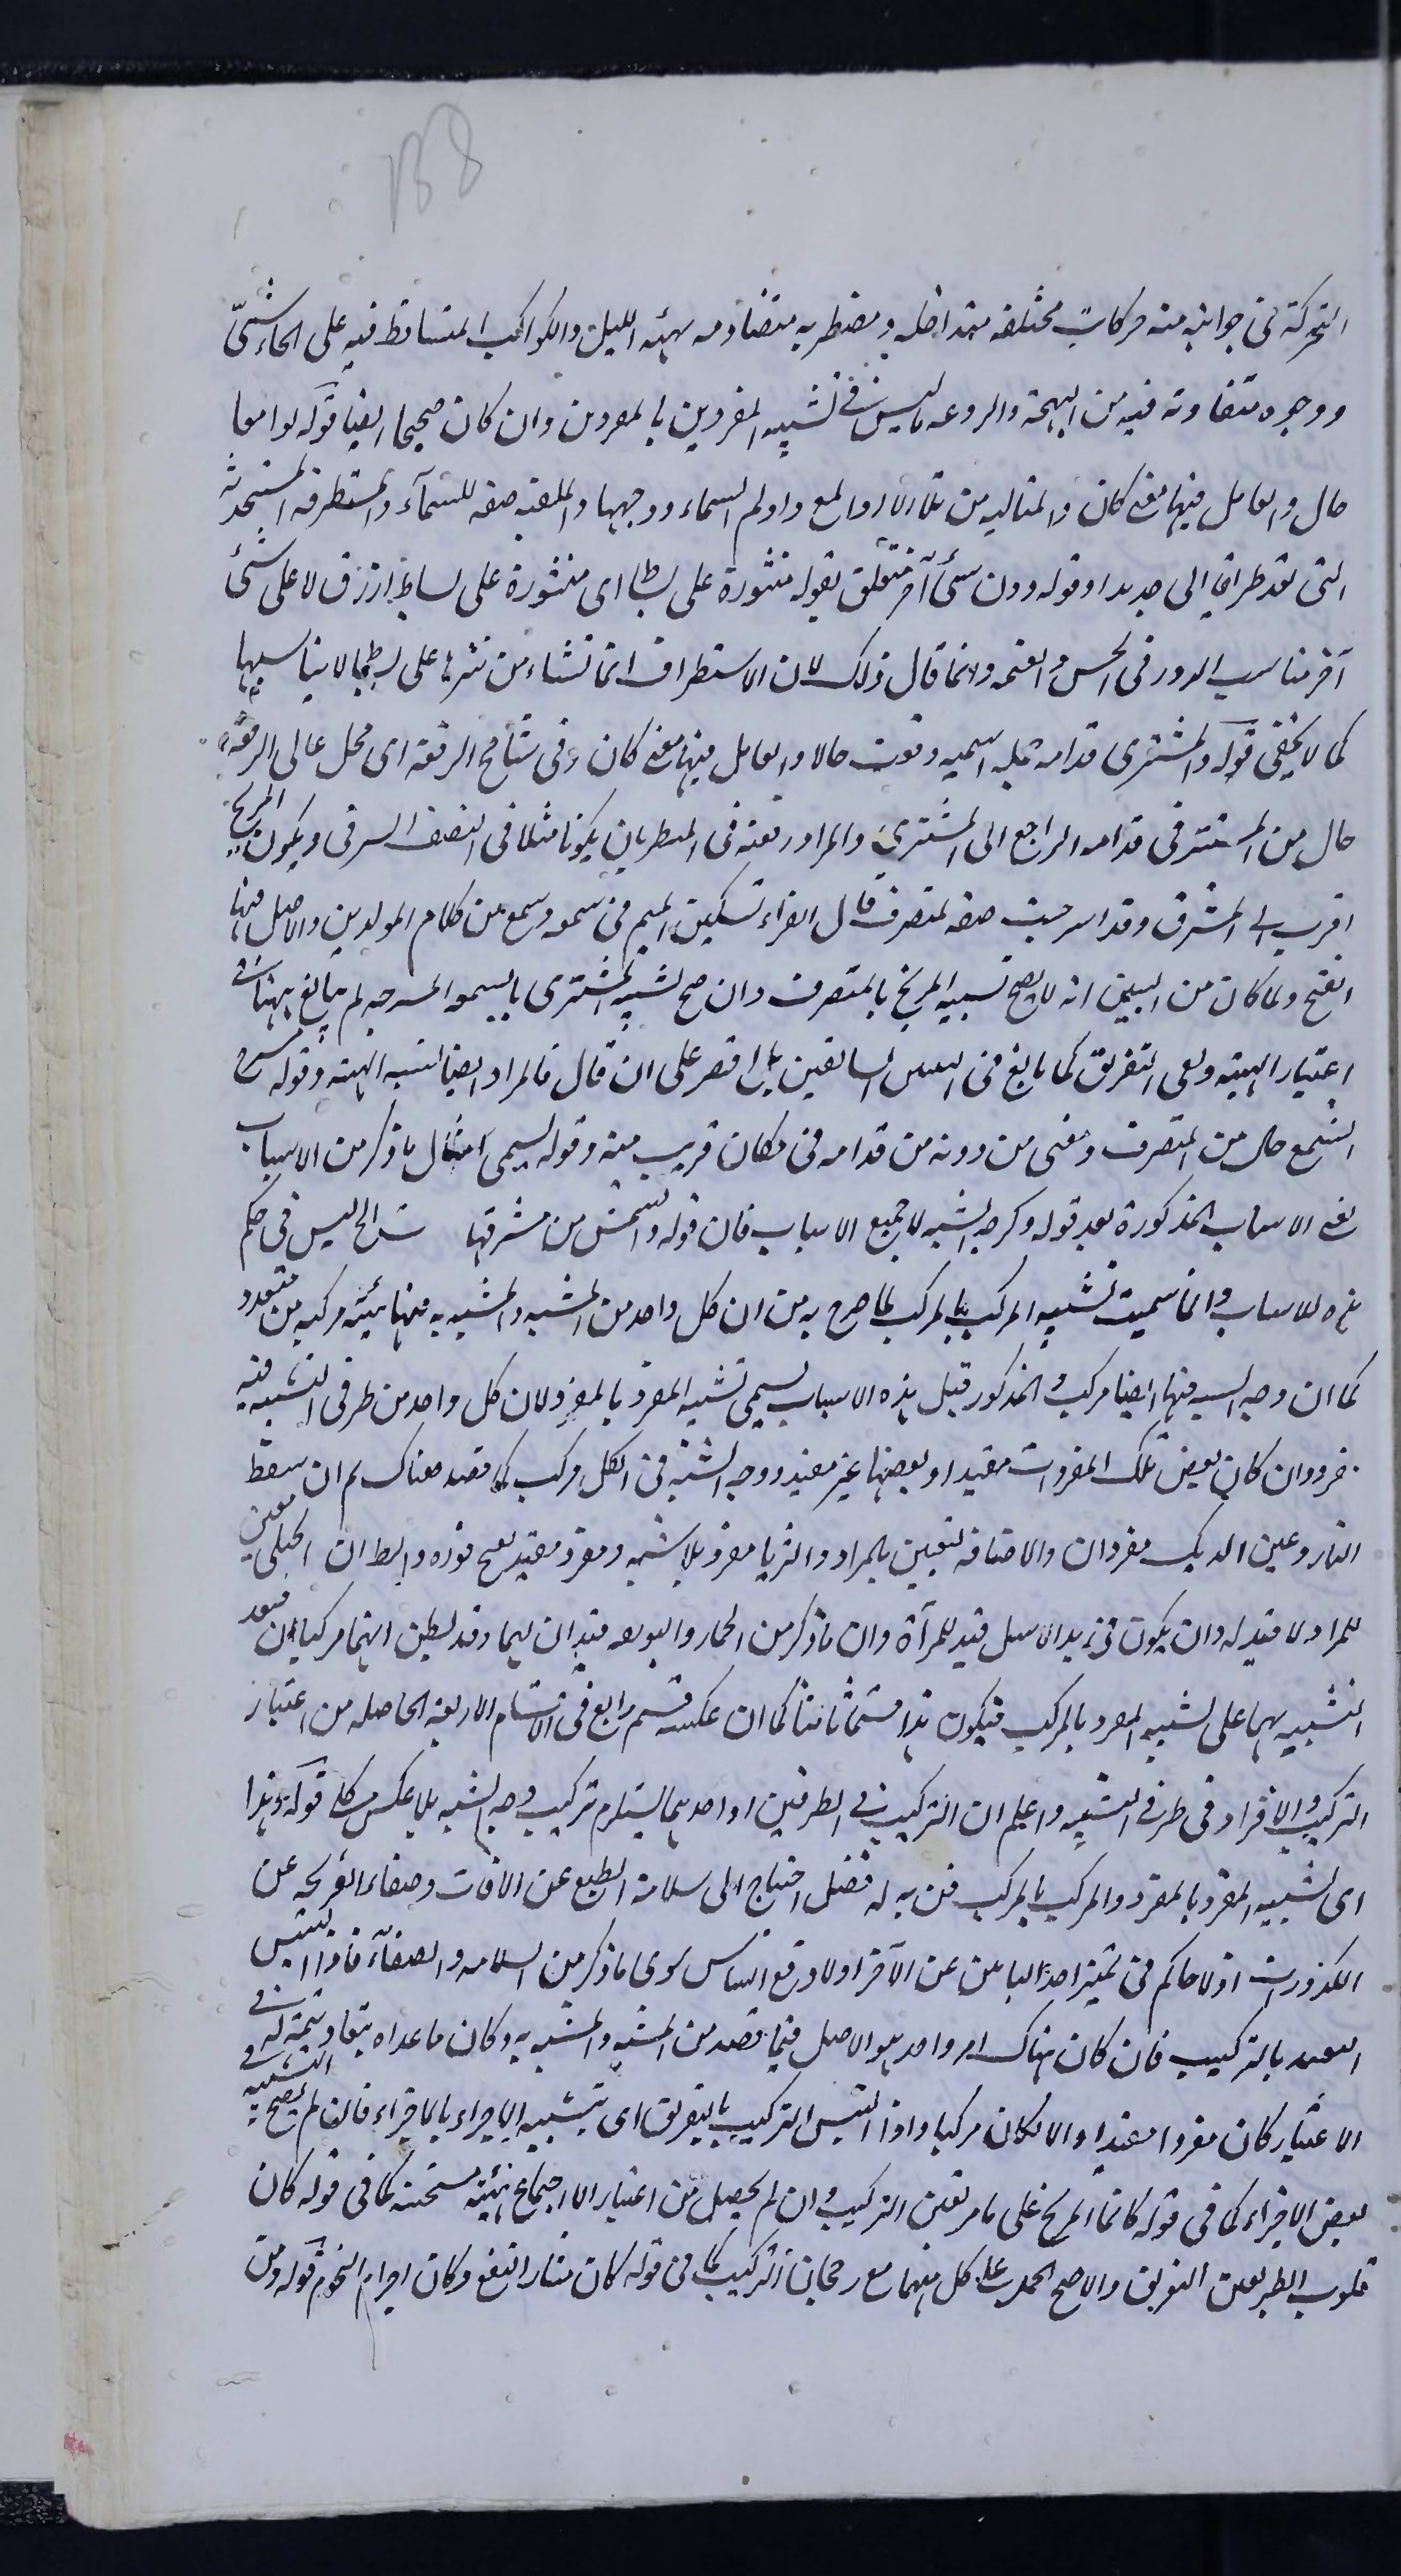 138
المتحركة في جوانبه منه حركات مختلفه متداخله و مضطربه متضادمه بهيئه الليل والكواكب المتساقط فيه على انحاء شتىّ
ووجوه متفاوته فيه من البهجة والروعه ما ليس في تشبيه المفردين بالمفردين وان كان صحيحا ايضا قوله لوامعا
حال والعامل فيها معنى كان والمتاليه من تلألأ اذا لمع واديم السماء ووجهها والملقبه صفه للسمآء والمستطرفه المستحدثه
التي تعد طرافا اى جديدا وقوله دون شئ آخر متعلق بقوله منثورة على بساط اى منثورة على بساط ازرق لا على شئ
آخر مناسب الدور في الحس والقيمه وانما قال ذلك لان الاستطراف انما تنشاء من نثرها على بساط لا يناسبها
كما لا يخفى قوله والمشترى قدامه جمله اسميه وقعت حالا والعامل فيها معنى كان وفي شامخ الرفعه اى محل عالى الرفعه
حال من المستتر في قدامه الراجع الى المشترى والمراد رفعته في المنظر بان يكونا مثلا في النصف الشرقى ويكون المريخ
اقرب الى المشرق وقد اسرجت صفه لمنصرف قال الفراء تسكين الميم في شمعه وشمع من كلام المولدين والاصل فيها
الفتح ولما كان من البين انه لا يصح تشبيه المريخ بالمنصرف وان صح تشبيه المشترى بالشمعه المسرجه لم يبالغ ههنا في
اعتبار الهيئه ونفى التفريق كما بالغ في السابقين بل اقتصر على ان قال فالمراد ايضا تشبيه الهيئه وقوله
الشمع حال من المنصرف ومعنى من دونه من قدامه في مكان قريب منه وقوله يسمى امثال ما ذكر من الابيات
يعنى الابيات المذكورة بعد قوله وكره الشبه لا جميع الابيات فان قوله والشمس من مشرقها الخ ليس في حكم
هذه الابيات وانما سميت تشبيه المركب بالمركب لما صرح به من ان كل واحد من المشبه والمشبه به فيها هيئه مركبه من متعدد
كما ان وجه الشبه فيها ايضا مركب والمذكور قبل هذه الابيات يسمى تشبيه المفرد بالمفرد لان كل واحد من طرفى التشبيه فيه
مفرد وان كان بعض تلك المفردات مقيدا وبعضها غير مقيد ووجه الشبه في الكل مركب كما قصد هناك ثم ان سقط
النار وعين الديك مفردان والاضافه لتعيين المراد والثريا مفرد بلا شبهه ومفرد مقيد نوره والظ ان الحبلى معين
للمراد لا قيد له وان يكون في يد الاشل قيد للمرآة وان ما ذكر من الحمار واليهود قيدان لهما وقد يظن انهما مركبان فيعد
التشبيه بهما على تشبيه المفرد بالمركب فيكون هذا قسما ثالثا كما ان عكسه قسم رابع في الاقسام الاربعه الحاصله من اعتبار
التركيب والافراد في طرفى التشبيه واعلم ان التركيب في الطرفين او احدهما يستلزم تركيب وجه الشبه بلا عكس كلى قوله وهذا
اى تشبيه المفرد بالمفرد والمركب بالمركب فن به له فضل احتياج الى سلامة الطبع عن الافات وصفاء القريحه عن
الكدورات اذ لا حاكم في تميز احد البابين عن الآخر ولا ورفع التباس سوى ما ذكر من السلامه والصفآء فاذا التبس
التقييد بالتركيب فان كان هناك امر واحد هو الاصل فيما قصد من المشبه والمشبه به وكان ما عداه تبعا وتتمة له في
الاعتبار كان مفردا مقيدا والا لكان مركبا واذا التبس التركيب بالتفريق اى بتشبيه الاجزاء بالاجزاء فان لم يصح التشبيه في
بعض الاجزاء كما في قوله كانما المريخ على ما مر تعين التركيب وان لم يحصل من اعتبار الاجتماع هيئة مستحسنه كما في قوله كان
قلوب الطير تعين التفريق والا صح الحمل على كل منهما مع رجحان التركيب كما في قوله كان مثار النقع وكان اجرام النجوم قوله ومن